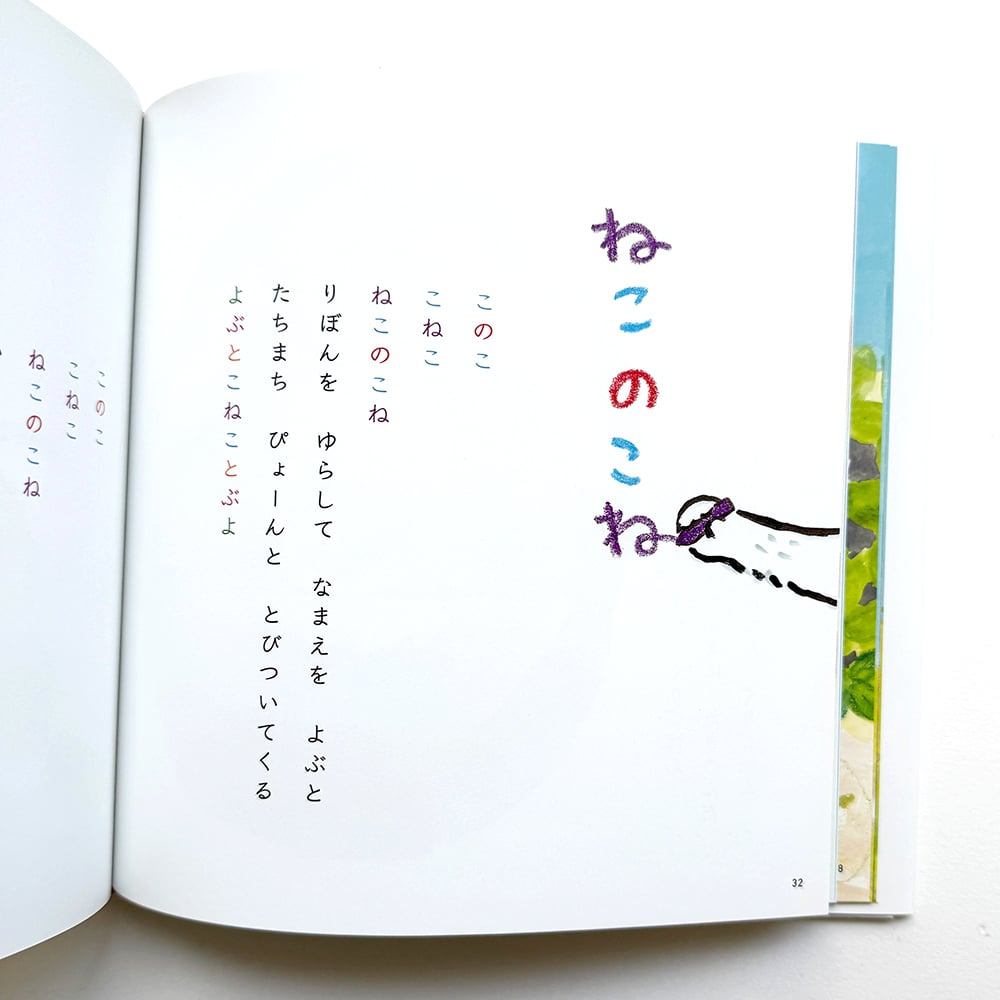 ねこのこね
このこ
こねこ
ねこのこね
りぼんを　ゆらして　なまえを　よぶと
たちまち　ぴょーんと　とびついてくる
よぶとこねことぶよ
32
8
このこ
こねこ
ねこのこね